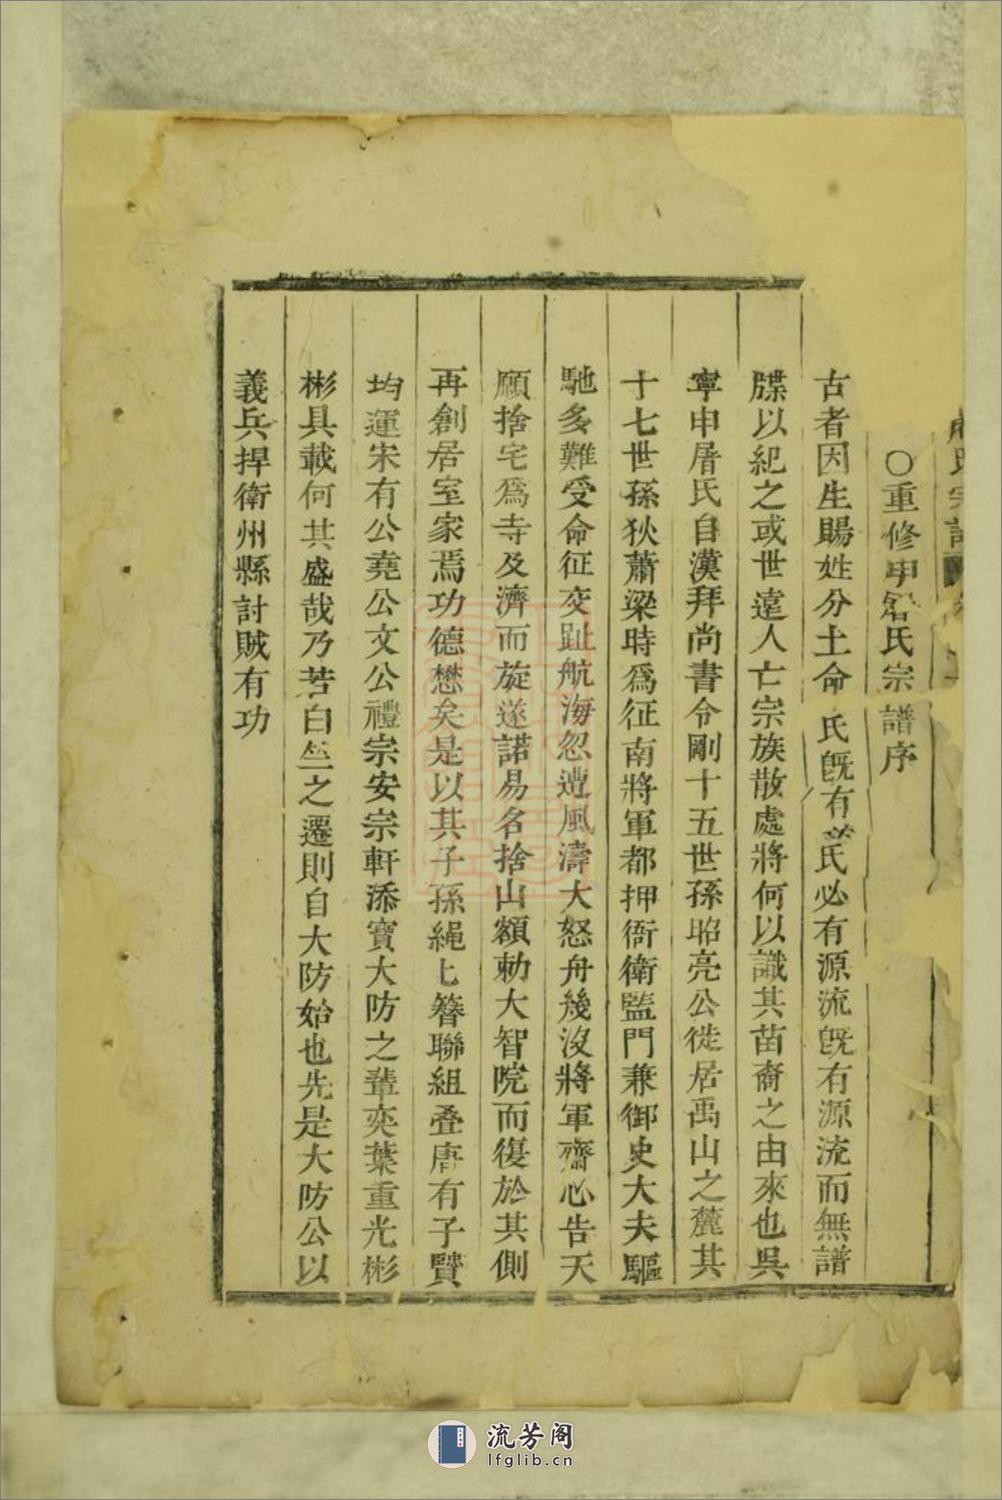 氏宗譜
〇重修申屠氏宗譜序
古者因生賜姓分土命氏旣有姓氏必有源流旣有源流而無譜
牒以紀之或世遠人亡宗族散處將何以識其苗裔之由來也吳
寧申屠氏自漢拜尚書令剛十五世孫昭亮公徙居禹山之麓其
十七世孫狄蕭梁時爲征南將軍都押衙衛監門兼御史大夫驅
馳多難受命征交趾航海忽遭風濤大怒舟幾沒將軍齋心告天
願捨宅爲寺及濟而旋遂諾易名捨山額勅大智院而復於其側
再創居室家焉功德懋矣是以其子孫繩匕簪聯組叠唐有子賢
均運宋有公堯公文公禮宗安宗軒添寶大防之輩奕葉重光彬
彬具載何其盛哉乃若白竺之遷則自大防始也先是大防公以
義兵捍衛州縣討賊有功
流芳阁
lfglib.cn